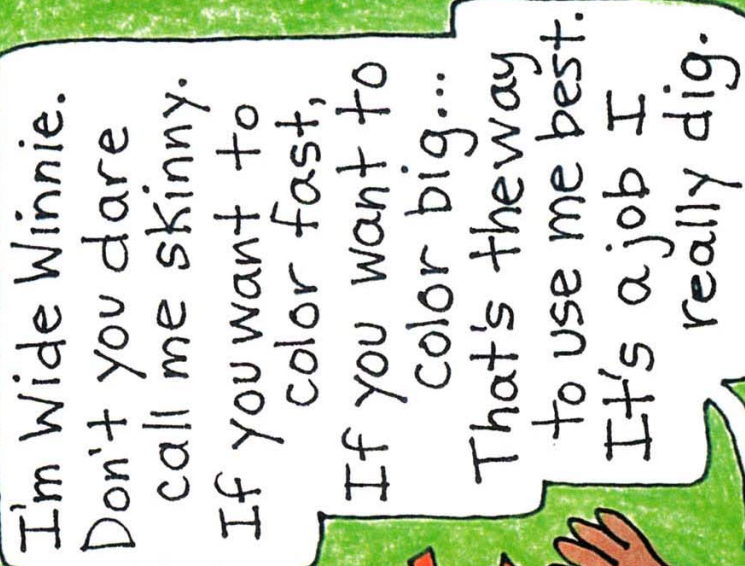 I'm Wide Winnie.
Don't you dare
call me skinny.
If you want to
color fast,
If you want to
color big...
That's the way
to use me best.
It's a job I
really dig.